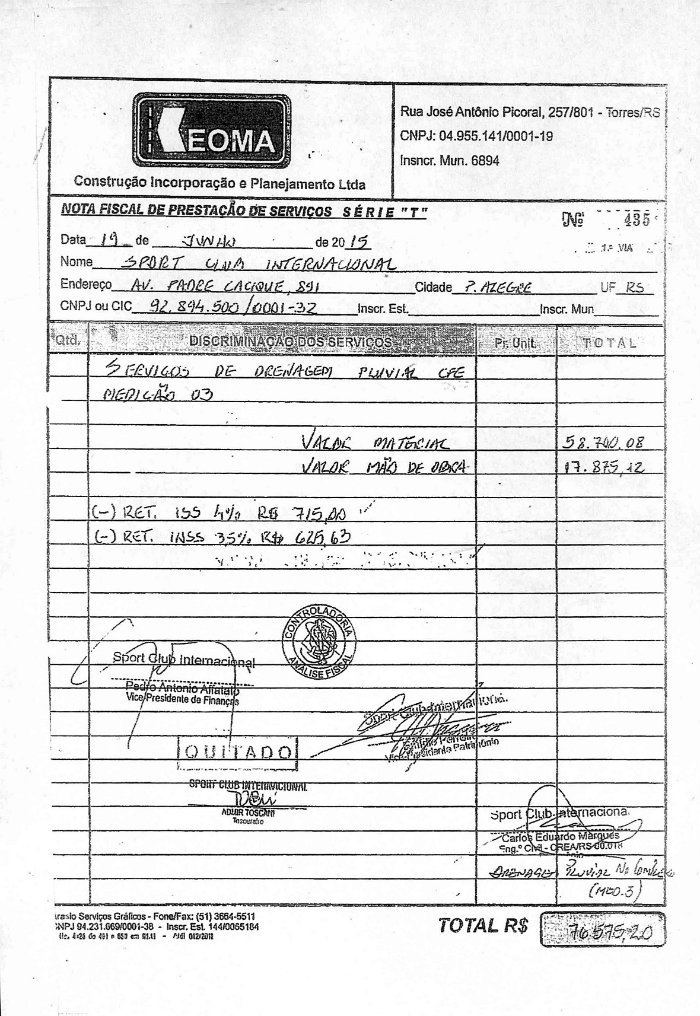 KEOMA
Construção Incorporação e Planejamento Ltda
Rua José Antônio Picoral, 257/801 - Torres/RS
CNPJ: 04.955.141/0001-19
Insncr. Mun. 6894
NOTA FISCAL DE PRESTAÇÃO DE SERVIÇOS SÉRIE "T"
Nº 435
1.ª VIA
Data 19 de JUNHO de 2015
Nome SPORT CLUB INTERNACIONAL
Endereço AV. PADRE CACIQUE, 891 Cidade P. ALEGRE UF RS
CNPJ ou CIC 92.894.500/0001-32 Inscr. Est. Inscr. Mun
Qtd. DISCRIMINAÇÃO DOS SERVIÇOS Pr. Unit. TOTAL
SERVIÇOS DE DRENAGEM PLUVIAL CFE
MEDIÇÃO 03
VALOR MATERIAL 58.700,08
VALOR MÃO DE OBRA 17.875,12
(-) RET. ISS 4% R$ 715,00
(-) RET. INSS 3,5% R$ 625,63
CONTROLADORIA
ANÁLISE FISCAL
Sport Club Internacional
Pedro Antonio Affatato
Vice Presidente de Finanças
Sport Club Internacional
Vice-Presidente Patrimônio
QUITADO
SPORT CLUB INTERNACIONAL
ADMIR TOSCANI
Tesoureiro
Sport Club Internacional
Carlos Eduardo Marques
Eng.º Civil - CREA/RS 60.018
DRENAGEM PLUVIAL NO
(MED.3)
Serviços Gráficos - Fone/Fax: (51) 3664-5511
CNPJ 94.231.669/0001-38 - Inscr. Est. 144/0065184
TOTAL R$ 76.575,20